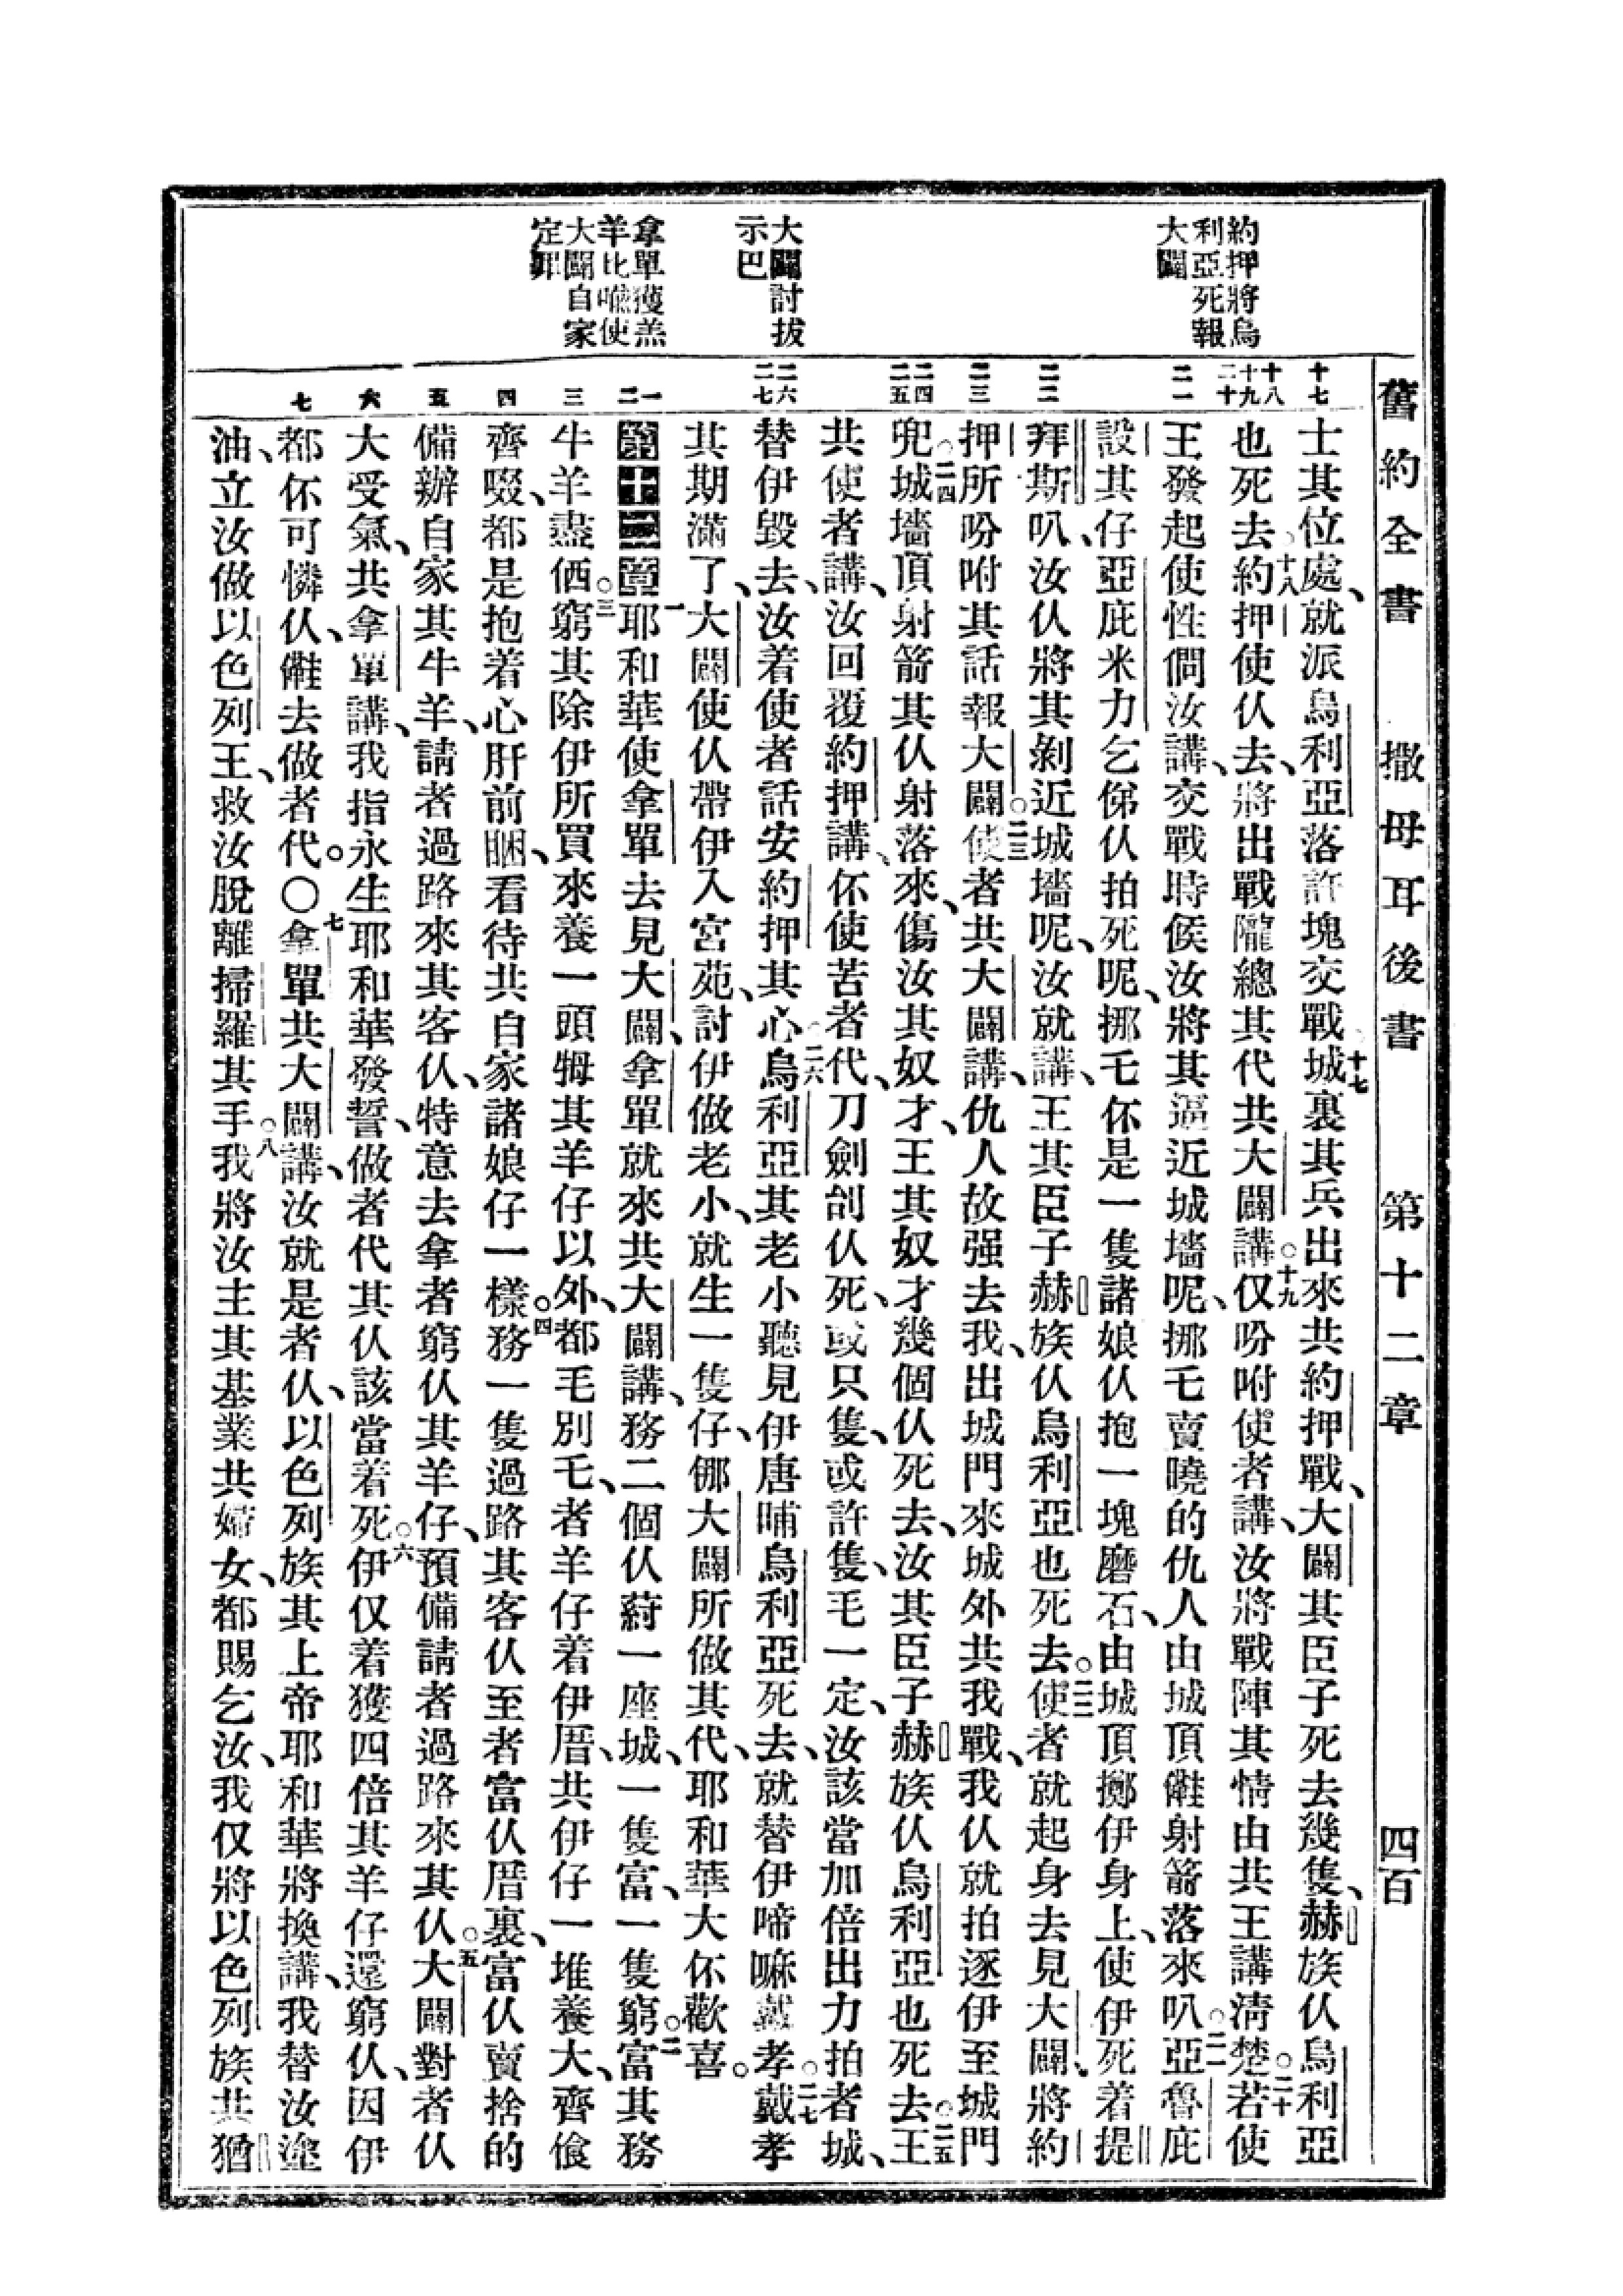 舊約全書 撒母耳後書 第十二章 四百
約押將烏
利亞死報
大闢
大闢討拔
示巴
拿單獲羔
羊比喻使
大闢自家
定罪
十七
十八
十九
二十
二一
二二
二三
二四
二五
二六
二七
一
二
三
四
五
六
七
士其位處、就派烏利亞落許塊交戰○十七城裏其兵出來共約押戰、大闢其臣子死去幾隻、赫族仈烏利亞
也死去○十八約押使仈去、將出戰隴總其代共大闢講○十九仅吩咐使者講、汝將戰陣其情由共王講淸楚○二十若使
王發起使性僴汝講、交戰時候汝將其逼近城墻呢、挪乇賣曉的仇人由城頂𨿽射箭落來叭○二一亞魯庇
設其仔亞庇米力乞俤仈拍死呢、挪乇伓是一隻諸娘仈抱一塊磨石、由城頂擲伊身上、使伊死着提
拜斯叭、汝仈將其剝近城墻呢、汝就講、王其臣子赫族仈烏利亞也死去。○二二使者就起身去見大闢、將約
押所吩咐其話報大闢○二三使者共大闢講、仇人故强去我、出城門來城外共我戰、我仈就拍逐伊至城門
兜○二四城墻頂射箭其仈射落來、傷汝其奴才、王其奴才幾個仈死去、汝其臣子赫族仈烏利亞也死去○二五王
共使者講、汝回覆約押講、伓使苦者代、刀劍刣仈死、或只隻、或許隻、毛一定、汝該當加倍出力拍者城、
替伊毀去、汝着使者話安約押其心○二六烏利亞其老小聽見伊唐晡烏利亞死去、就替伊啼嘛戴孝○二七戴孝
其期滿了、大闢使仈帶伊入宮苑、討伊做老小、就生一隻仔、㑚大闢所做其代、耶和華大伓歡喜。
第十二章一耶和華使拿單去見大闢、拿單就來共大闢講、務二個仈蒔一座城、一隻富、一隻窮○二富其務
牛羊盡㑚○三窮其除伊所買來養一頭牳其羊仔以外、○四都毛別乇、者羊仔着伊厝、共伊仔一堆養大、齊飧
齊啜、都是抱着心肝前睏、看待共自家諸娘仔一樣務一隻過路其客仈至者富仈厝裏、富仈賣捨的
備辦自家其牛羊、請者過路來其客仈、特意去拿者窮仈其羊仔、預備請者過路來其仈○五大闢對者仈
大受氣、共拿單講、我指永生耶和華發誓、做者代其仈該當着死○六伊仅着獲四倍其羊仔還窮仈、因伊
都伓可憐仈、𨿽去做者代。〇七拿單共大闢講、汝就是者仈、以色列族其上帝耶和華將換講、我替汝塗
油、立汝做以色列王、救汝脫離掃羅其手○八我將汝主其基業共婦女、都賜乞汝、我仅將以色列族共猶